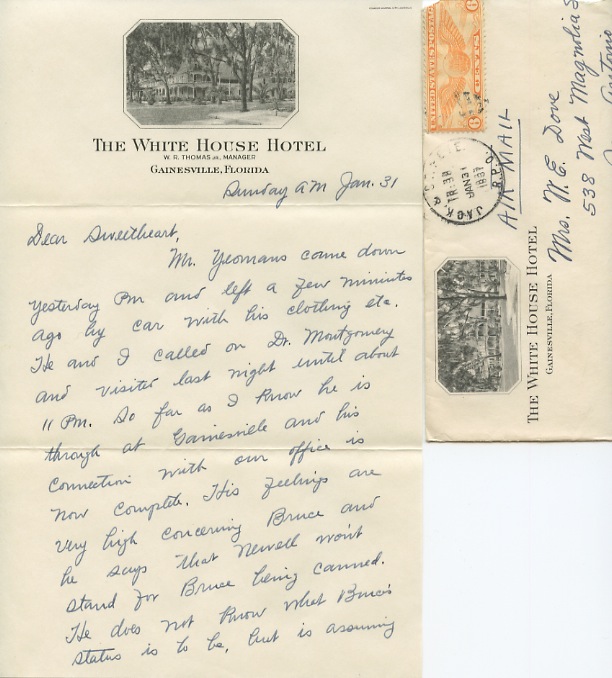 THE WHITE HOUSE HOTEL
W. R. THOMAS JR., MANAGER
GAINESVILLE, FLORIDA
Sunday AM Jan. 31
Dear Sweetheart,
Mr. Yeomans came down
yesterday PM and left a few minutes
ago by car with his clothing etc.
He and I called on Dr. Montgomery
and visited last night until about
11 PM. So far as I know he is
through at Gainesville and his
connection with our office is
now complete. His feelings are
very high concerning Bruce and
he says that Newell won't
stand for Bruce being canned.
He does not know what Bruce's
status is to be, but is assuming
UNITED STATES POSTAGE
6 CENTS 6
JAN 31
1937
R.P.O.
AIR MAIL
Mrs. W.E. Dove
538 West Magnolia
Antonio
THE WHITE HOUSE HOTEL
GAINESVILLE, FLORIDA